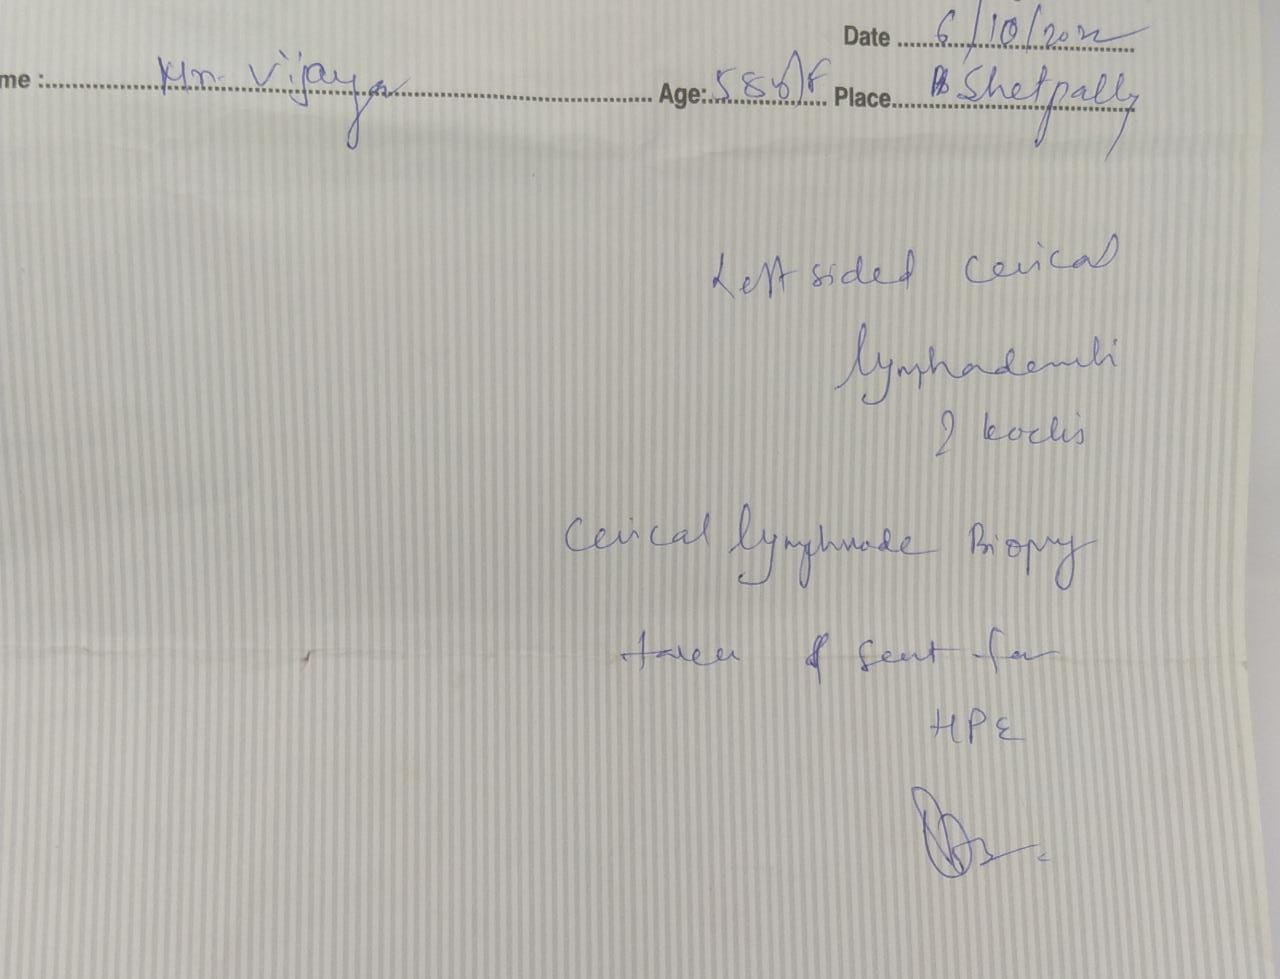 Date 6/10/2022
me : Mrs. Vijaya Age: 58y/F Place Shetpally
Left sided Cevical
lymphadeniti
? kochs
Cevical lymphnode Biopsy
taken & sent for
HPE